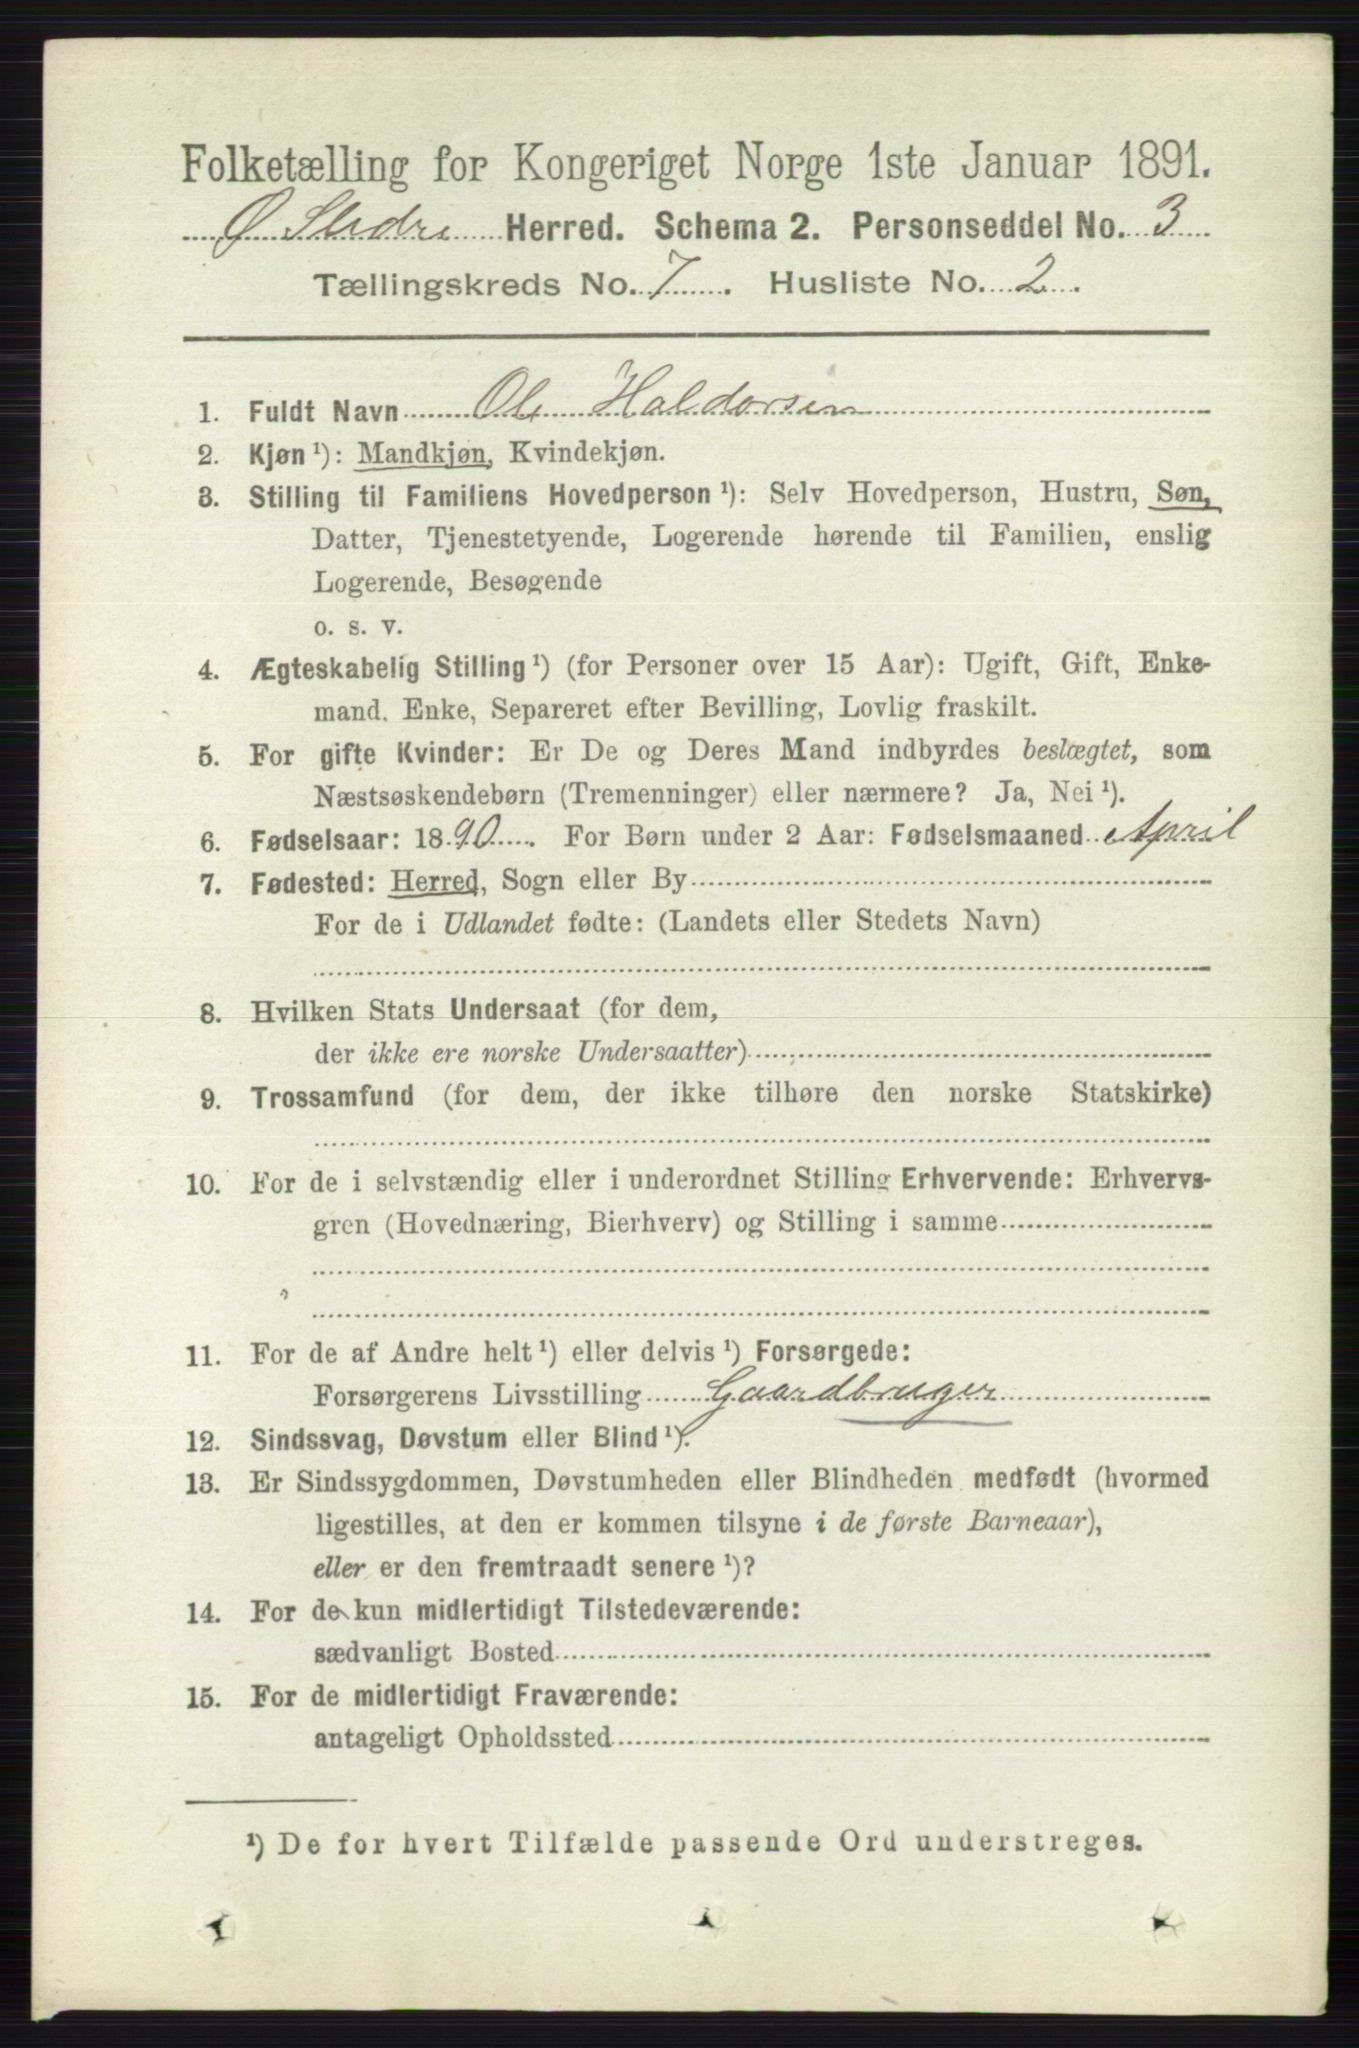 Folketælling for Kongeriget Norge 1ste Januar 1891.
Ø Slidre Herred. Schema 2. Personseddel No. 3
Tællingskreds No. 7. Husliste No. 2.
1. Fuldt Navn Ole Haldorsen
2. Kjøn ¹): Mandkjøn, Kvindekjøn.
3. Stilling til Familiens Hovedperson ¹): Selv Hovedperson, Hustru, Søn,
Datter, Tjenestetyende, Logerende hørende til Familien, enslig
Logerende, Besøgende
o. s. v.
4. Ægteskabelig Stilling ¹) (for Personer over 15 Aar): Ugift, Gift, Enke-
mand, Enke, Separeret efter Bevilling, Lovlig fraskilt.
5. For gifte Kvinder: Er De og Deres Mand indbyrdes beslægtet, som
Næstsøskendebørn (Tremenninger) eller nærmere? Ja, Nei ¹).
6. Fødselsaar: 1890. For Børn under 2 Aar: Fødselsmaaned April
7. Fødested: Herred, Sogn eller By
For de i Udlandet fødte: (Landets eller Stedets Navn)
8. Hvilken Stats Undersaat (for dem,
der ikke ere norske Undersaatter)
9. Trossamfund (for dem, der ikke tilhøre den norske Statskirke)
10. For de i selvstændig eller i underordnet Stilling Erhvervende: Erhvervs-
gren (Hovednæring, Bierhverv) og Stilling i samme
11. For de af Andre helt ¹) eller delvis ¹) Forsørgede:
Forsørgerens Livsstilling Gaardbruger
12. Sindssvag, Døvstum eller Blind ¹).
13. Er Sindssygdommen, Døvstumheden eller Blindheden medfødt (hvormed
ligestilles, at den er kommen tilsyne i de første Barneaar),
eller er den fremtraadt senere ¹)?
14. For de kun midlertidigt Tilstedeværende:
sædvanligt Bosted
15. For de midlertidigt Fraværende:
antageligt Opholdssted
¹) De for hvert Tilfælde passende Ord understreges.